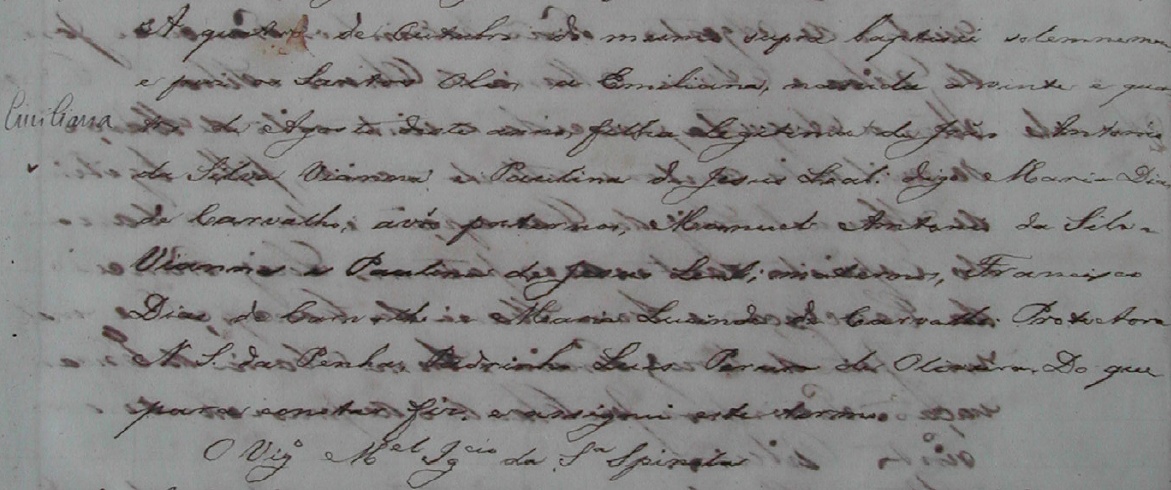 A quatro de Outubro do mesmo supra baptisei solemneme
e puz os Santos Oleos a Emiliana, nascida a vinte e qua
Emiliana
tro de Agosto deste anno, filha legitima de João Antonio
da Silva Vianna e Paulina de Jesus Leal digo Maria Dia
de Carvalho, avós paternos, Manuel Antonio da Silv-
Vianna e Paulina de Jesus Leal; maternos, Francisco
Dias de Carvalho e Maria Lucinda de Carvalho. Protectora
N. S. da Penha, Padrinho Luis de Oliveira. Do que
para constar fiz e assignei este termo.
O Vigº Mel Igcio da Sª Spinola